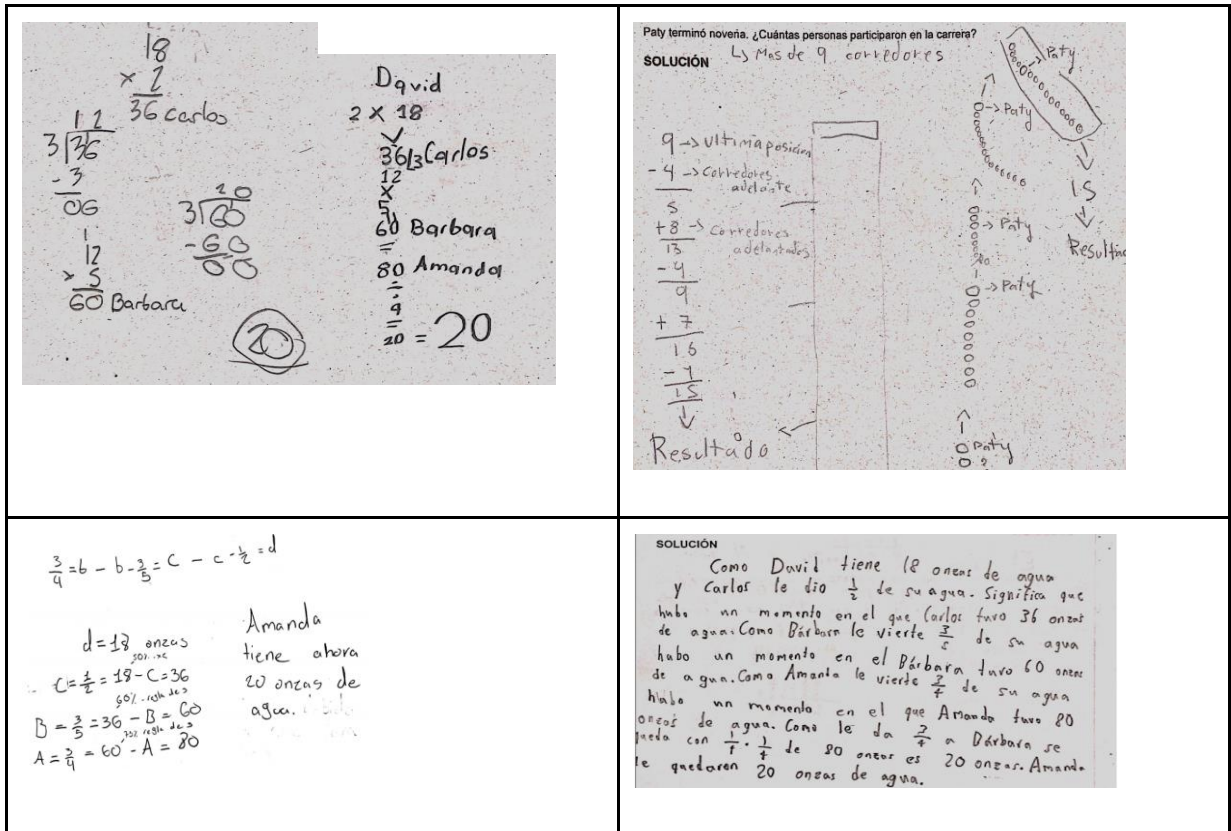 18
× 2
36 Carlos
12
3 36
- 3
06
1
12
× 5
60 Barbara
20
3 60
- 60
00
20
David
2 × 18
36 3 Carlos
12
×
5
60 Barbara
=
80 Amanda
÷
4
=
20 = 20
Paty terminó novena. ¿Cuántas personas participaron en la carrera?
↳ Mas de 9 corredores
SOLUCIÓN
9 → ultima posicion
- 4 → corredores adelante
5
+8 → corredores adelantados
13
- 4
9
+ 7
16
- 1
15
↓
Resultado
Paty
→ Paty
→ Paty
→ Paty
Paty
15
↓
Resultado
3/4 = b - b - 3/5 = c - c - 1/2 = d
d = 18 onzas
C = 1/2 = 18 - C = 36
B = 3/5 = 36 - B = 60
A = 3/4 = 60 - A = 80
Amanda
tiene ahora
20 onzas de
agua.
SOLUCIÓN
Como David tiene 18 onzas de agua
y Carlos le dio 1/2 de su agua. Significa que
hubo un momento en el que Carlos tuvo 36 onzas
de agua. Como Bárbara le vierte 3/5 de su agua
habo un momento en el Bárbara tuvo 60 onzas
de agua. Como Amanda le vierte 3/4 de su agua
hubo un momento en el que Amanda tuvo 80
onzas de agua. Como le da 3/4 a Bárbara se
queda con 1/4. 1/4 de 80 onzas es 20 onzas. Amanda
le quedaron 20 onzas de agua.